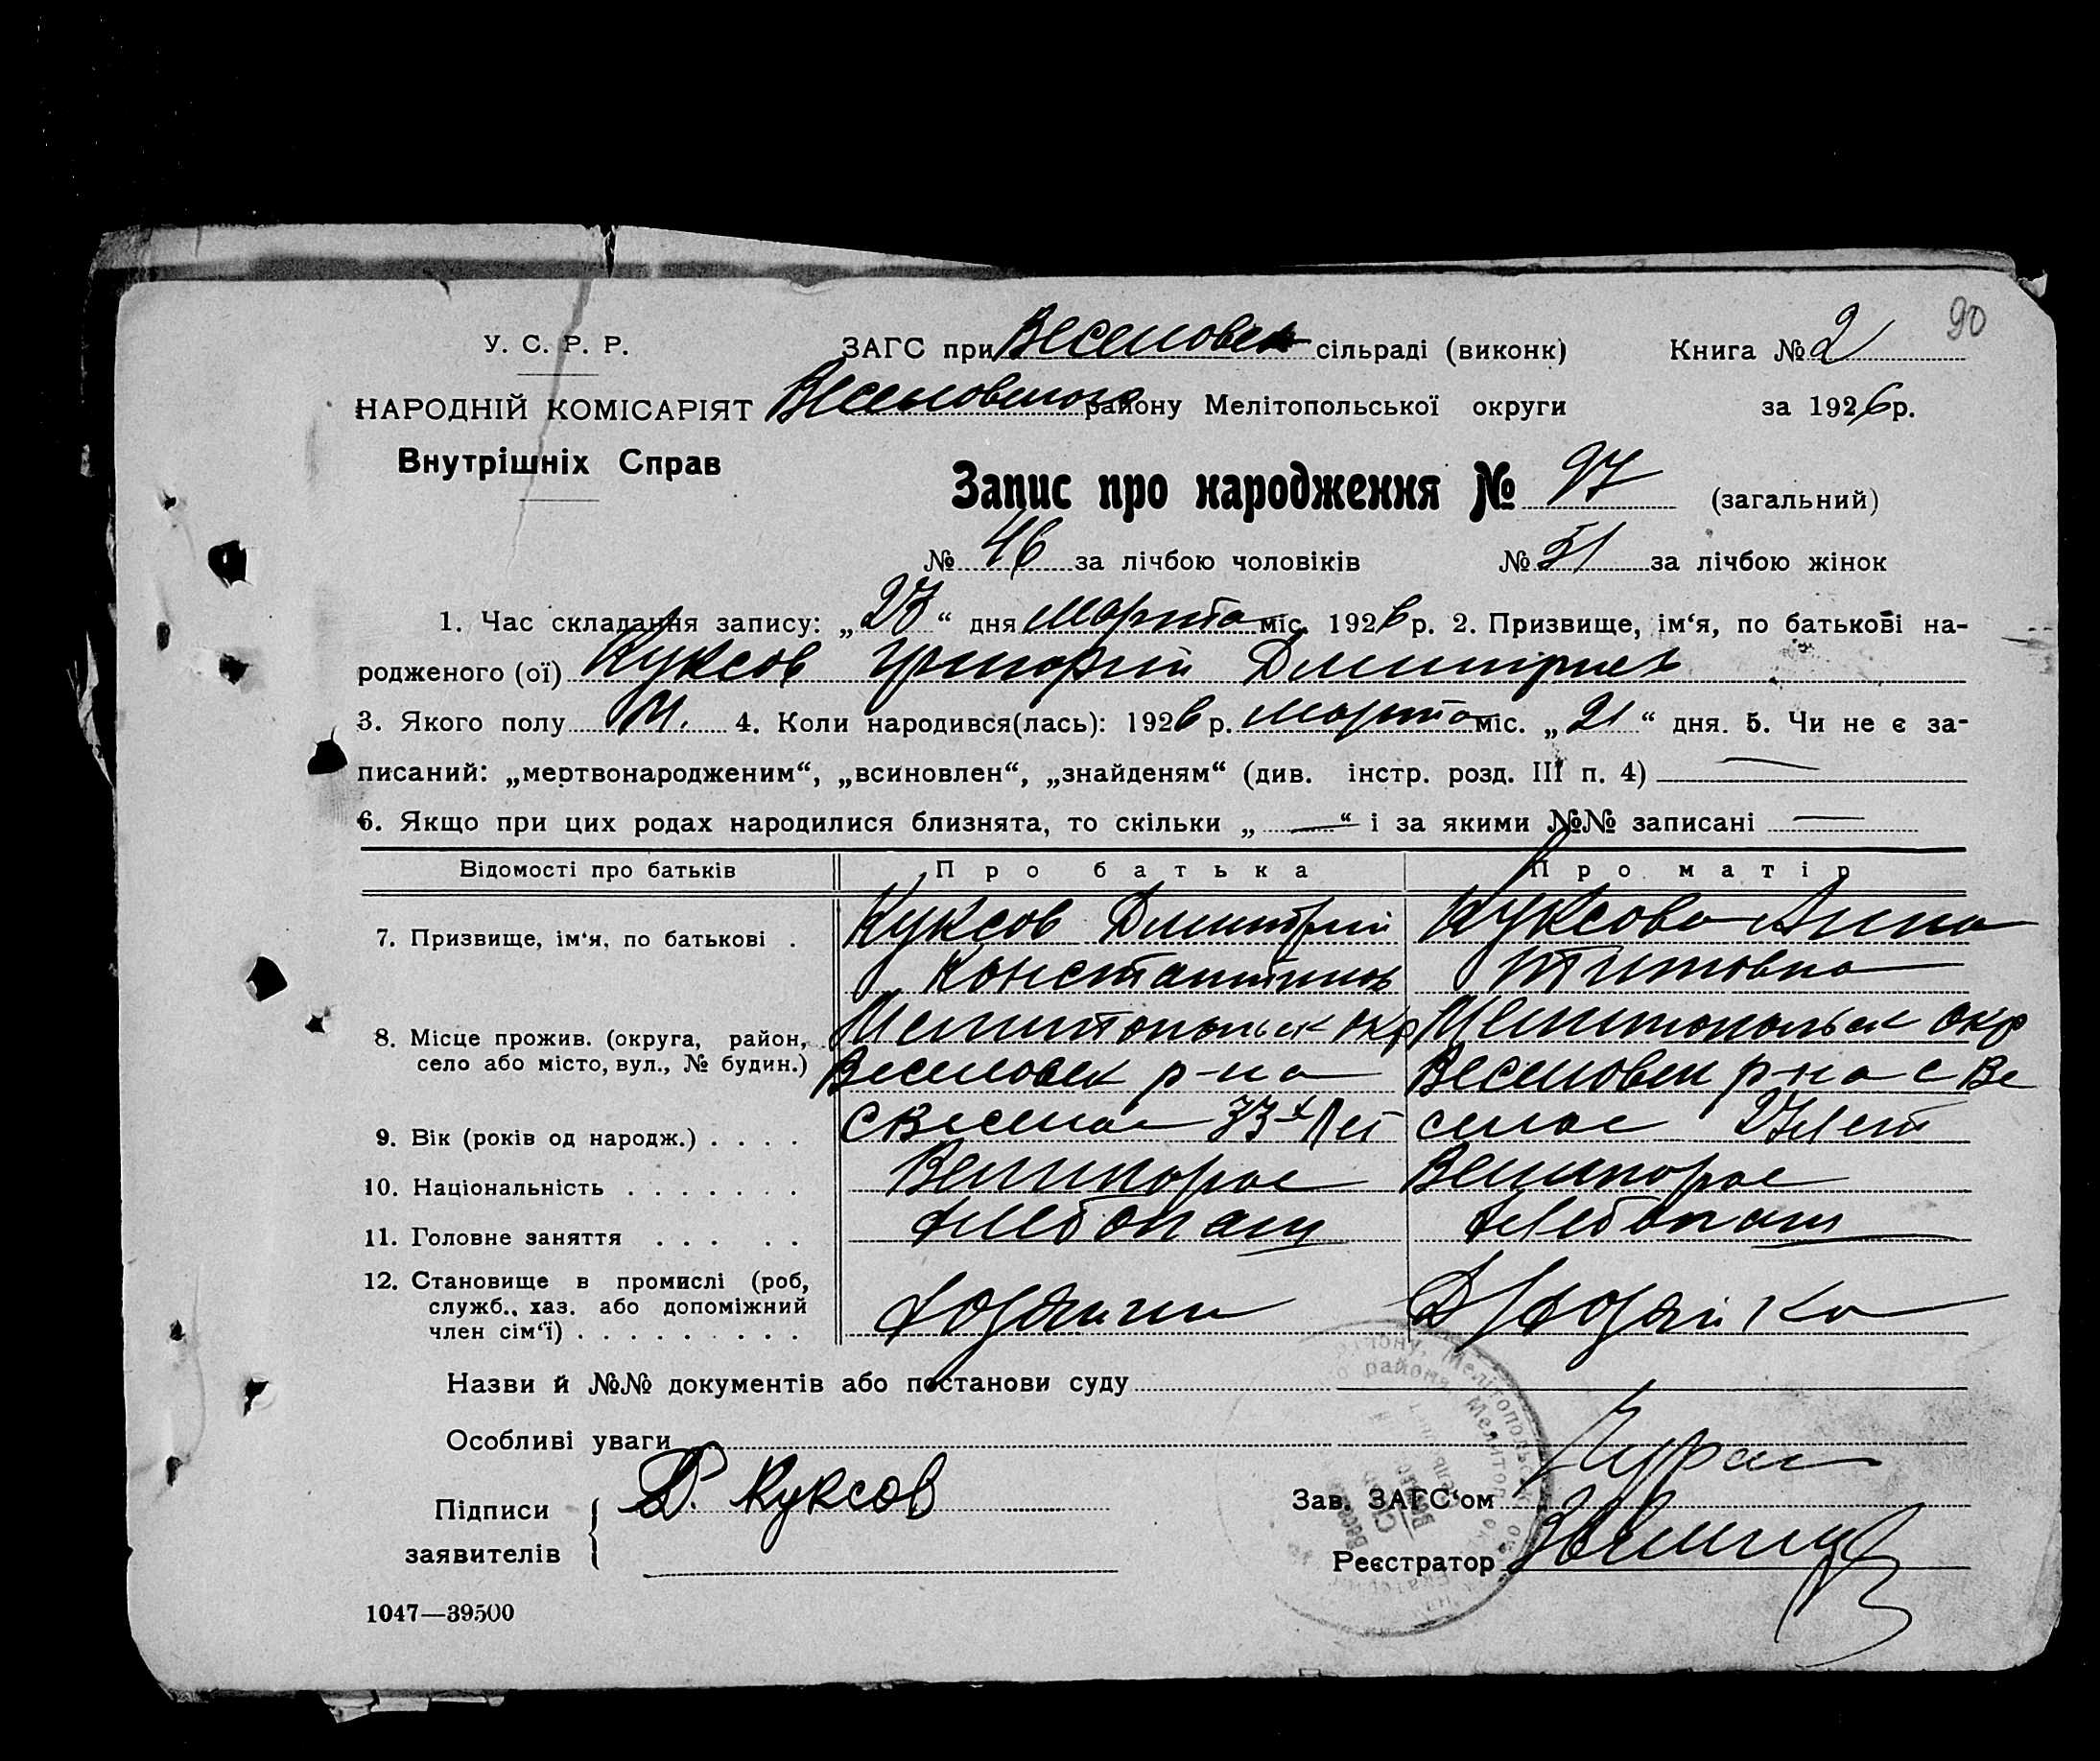 90
У. С. Р. Р.
НАРОДНІЙ КОМІСАРІЯТ
Внутрішніх Справ
ЗАГС при Веселовск сільраді (виконк) Книга № 2
Веселовского району Мелітопольської округи за 1926 р.
Запис про народження № 97 (загальний)
№ 46 за лічбою чоловіків № 51 за лічбою жінок
1. Час складання запису: „23“ дня марта міс. 1926 р. 2. Призвище, ім‘я, по батькові на-
родженого (ої) Куксов Григорій Дмитриев
3. Якого полу М. 4. Коли народився(лась): 1926 р. марта міс. „21“ дня. 5. Чи не є за-
писаний: „мертвонародженим“, „всиновлен“, „знайденям“ (див. інстр. розд. III п. 4) —
6. Якщо при цих родах народилися близнята, то скільки „—“ і за якими №№ записані —
Відомості про батьків Про батька Про матір
7. Призвище, ім‘я, по батькові . Куксов Дмитрий Куксова Анна
Константинов Титовна
8. Місце прожив. (округа, район, Мелитопольск окр Мелитопольск окр
село або місто, вул., № будин.) Веселовск р-на Веселовск р-на с Ве
9. Вік (років од народж.) . . . . с Веселое 33-х лет селое 27 лет
10. Національність . . . . . . . Великорос Великорос
11. Головне заняття . . . . . Хлебопаш Хлебопаш
12. Становище в промислі (роб,
служб., хаз. або допоміжний Хозяин Д/Хозяйка
член сім‘ї) . . . . . . . . .
Назви й №№ документів або постанови суду
Особливі уваги
Підписи Д. Куксов Зав. ЗАГС‘ом
заявителів Реєстратор
1047—39500